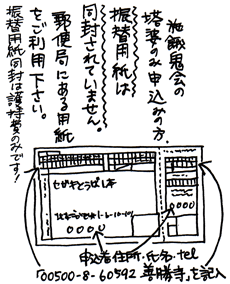 施餓鬼会の
塔婆のみ申込みの方、
振替用紙は
同封されていません。
郵便局にある用紙
をご利用下さい。
振替用紙同封は護持費のみです!
せがきとうば1本
申込者住所・氏名・tel
「00500-8-60592 善勝寺」を記入